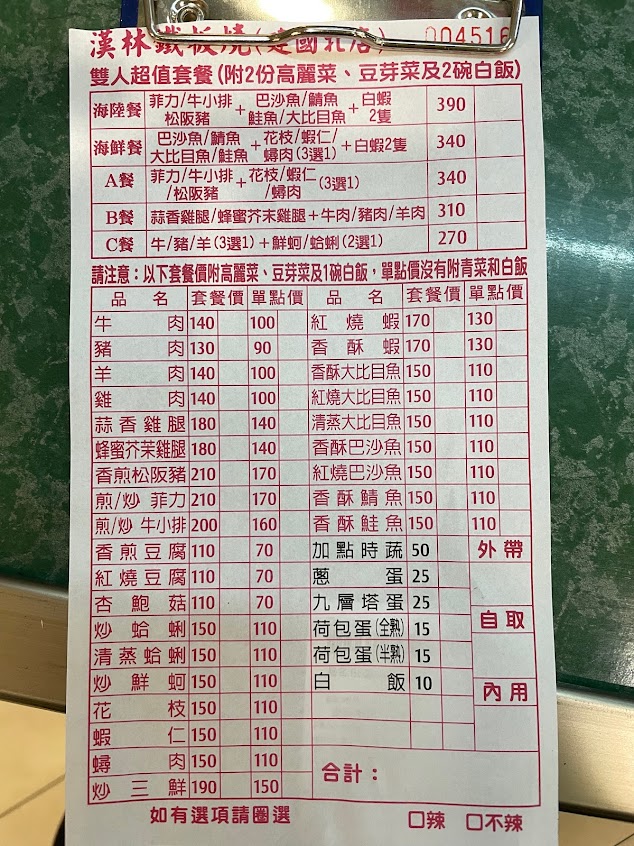 漢林鐵板燒(建國乳店) 004516
雙人超值套餐(附2份高麗菜、豆芽菜及2碗白飯)
海陸餐 菲力/牛小排/松阪豬+巴沙魚/鯖魚/鮭魚/大比目魚+白蝦2隻 390
海鮮餐 巴沙魚/鯖魚/大比目魚/鮭魚+花枝/蝦仁/蟳肉(3選1)+白蝦2隻 340
A餐 菲力/牛小排/松阪豬+花枝/蝦仁/蟳肉(3選1) 340
B餐 蒜香雞腿/蜂蜜芥末雞腿+牛肉/豬肉/羊肉 310
C餐 牛/豬/羊(3選1)+鮮蚵/蛤蜊(2選1) 270
請注意：以下套餐價附高麗菜、豆芽菜及1碗白飯，單點價沒有附青菜和白飯
品名 套餐價 單點價 品名 套餐價 單點價
牛肉 140 100 紅燒蝦 170 130
豬肉 130 90 香酥蝦 170 130
羊肉 140 100 香酥大比目魚 150 110
雞肉 140 100 紅燒大比目魚 150 110
蒜香雞腿 180 140 清蒸大比目魚 150 110
蜂蜜芥茉雞腿 180 140 香酥巴沙魚 150 110
香煎松阪豬 210 170 紅燒巴沙魚 150 110
煎/炒 菲力 210 170 香酥鯖魚 150 110
煎/炒 牛小排 200 160 香酥鮭魚 150 110
香煎豆腐 110 70 加點時蔬 50 外帶
紅燒豆腐 110 70 蔥蛋 25
杏鮑菇 110 70 九層塔蛋 25 自取
炒蛤蜊 150 110 荷包蛋(全熟) 15
清蒸蛤蜊 150 110 荷包蛋(半熟) 15
炒鮮蚵 150 110 白飯 10 內用
花枝 150 110
蝦仁 150 110
蟳肉 150 110 合計：
炒三鮮 190 150
如有選項請圈選 口辣 口不辣